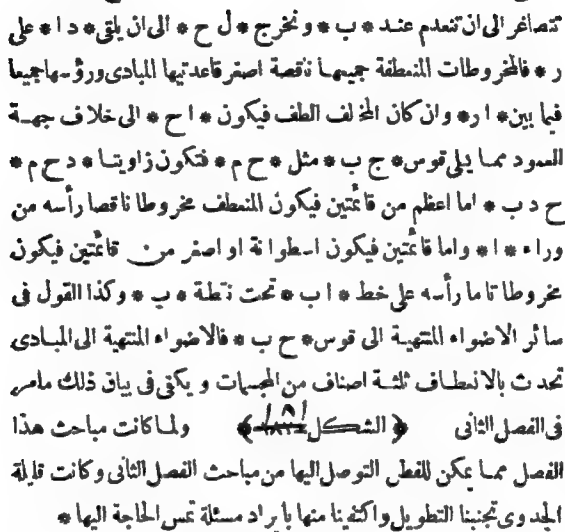 تتصاغر الى ان تنعدم عند * ب * ونخرج * ل ح * الى ان يلقى * د ا * على
ر * فالمخروطات المنعطفة جميعها ناقصة اصغر قاعدتيها المبادى ورؤسها جميعا
فيما بين * ا ر * وان كان المخالف الطف فيكون * ا ح * الى خلاف جهة
العمود مما يلى قوس * ج ب * مثل * ح م * فتكون زاويتا * د ح م *
ح د ب * اما اعظم من قائمتين فيكون المنعطف مخروطا ناقصا رأسه من
وراء * ا * واما قائمتين فيكون اسطوانة او اصغر من قائمتين فيكون
مخروطا تاما رأسه على خط * ا ب * تحت نقطة * ب * وكذا القول فى
سائر الاضواء المنتهية الى قوس * ح ب * فالاضواء المنتهية الى المبادى
تحدث بالانعطاف ثلثة اصناف من المجسمات ويكفى فى بيان ذلك مامر
فى الفصل الثانى ﴿ الشكل ﴾ ولما كانت مباحث هذا
الفصل مما يمكن للفطن التوصل اليها من مباحث الفصل الثانى وكانت قليلة
الجدوى تجنبنا التطويل واكتفينا منها بايراد مسئلة تمس الحاجة اليها *